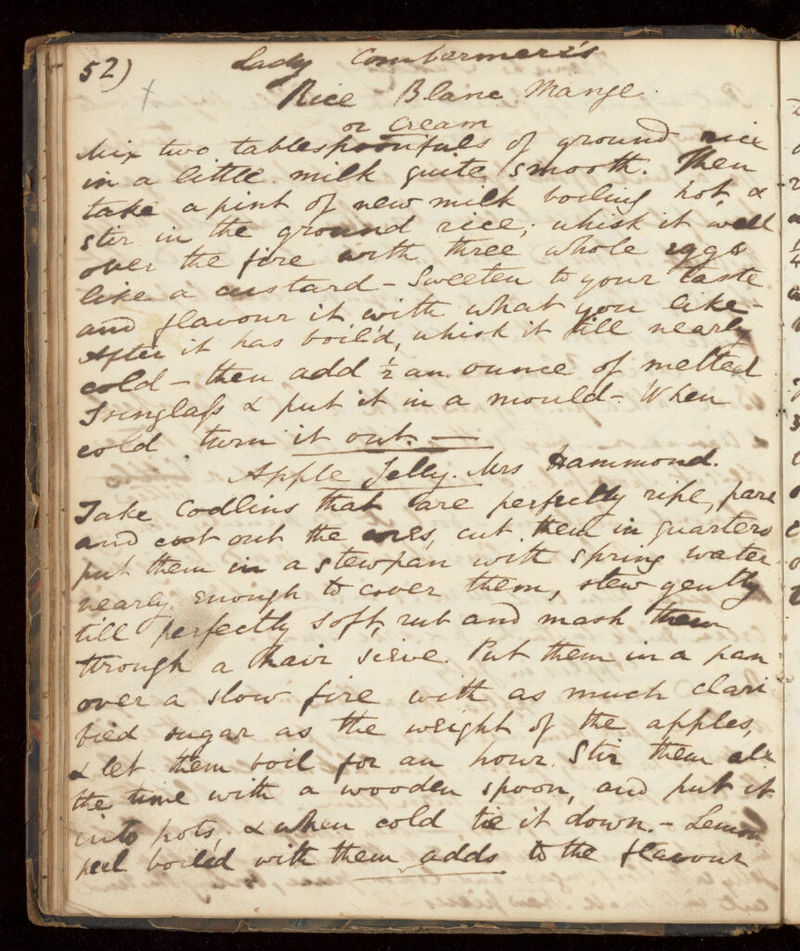 52)
Lady Combermere's
Rice Blanc Mange.
or Cream
Mix two tablespoonfuls of ground rice
in a little milk quite smooth. Then
take a pint of new milk boiling hot, &
stir in the ground rice; whisk it well
over the fire with three whole eggs
like a custard - Sweeten to your taste
and flavour it with what you like -
After it has boil'd, whisk it till nearly
cold - then add ½ an ounce of melted
Isinglass & put it in a mould - When
cold turn it out. -
Apple Jelly. Mrs Hammond.
Take Codlins that are perfectly ripe, pare
and cut out the cores, cut them in quarters
put them in a stewpan with spring water
nearly enough to cover them, stew gently
till perfectly soft, rub and mash them
through a hair sieve. Put them in a pan
over a slow fire with as much clari
fied sugar as the weight of the apples,
& let them boil for an hour. Stir them all
the time with a wooden spoon, and put it
into pots, & when cold tie it down. - Lemon
peel boiled with them adds to the flavour